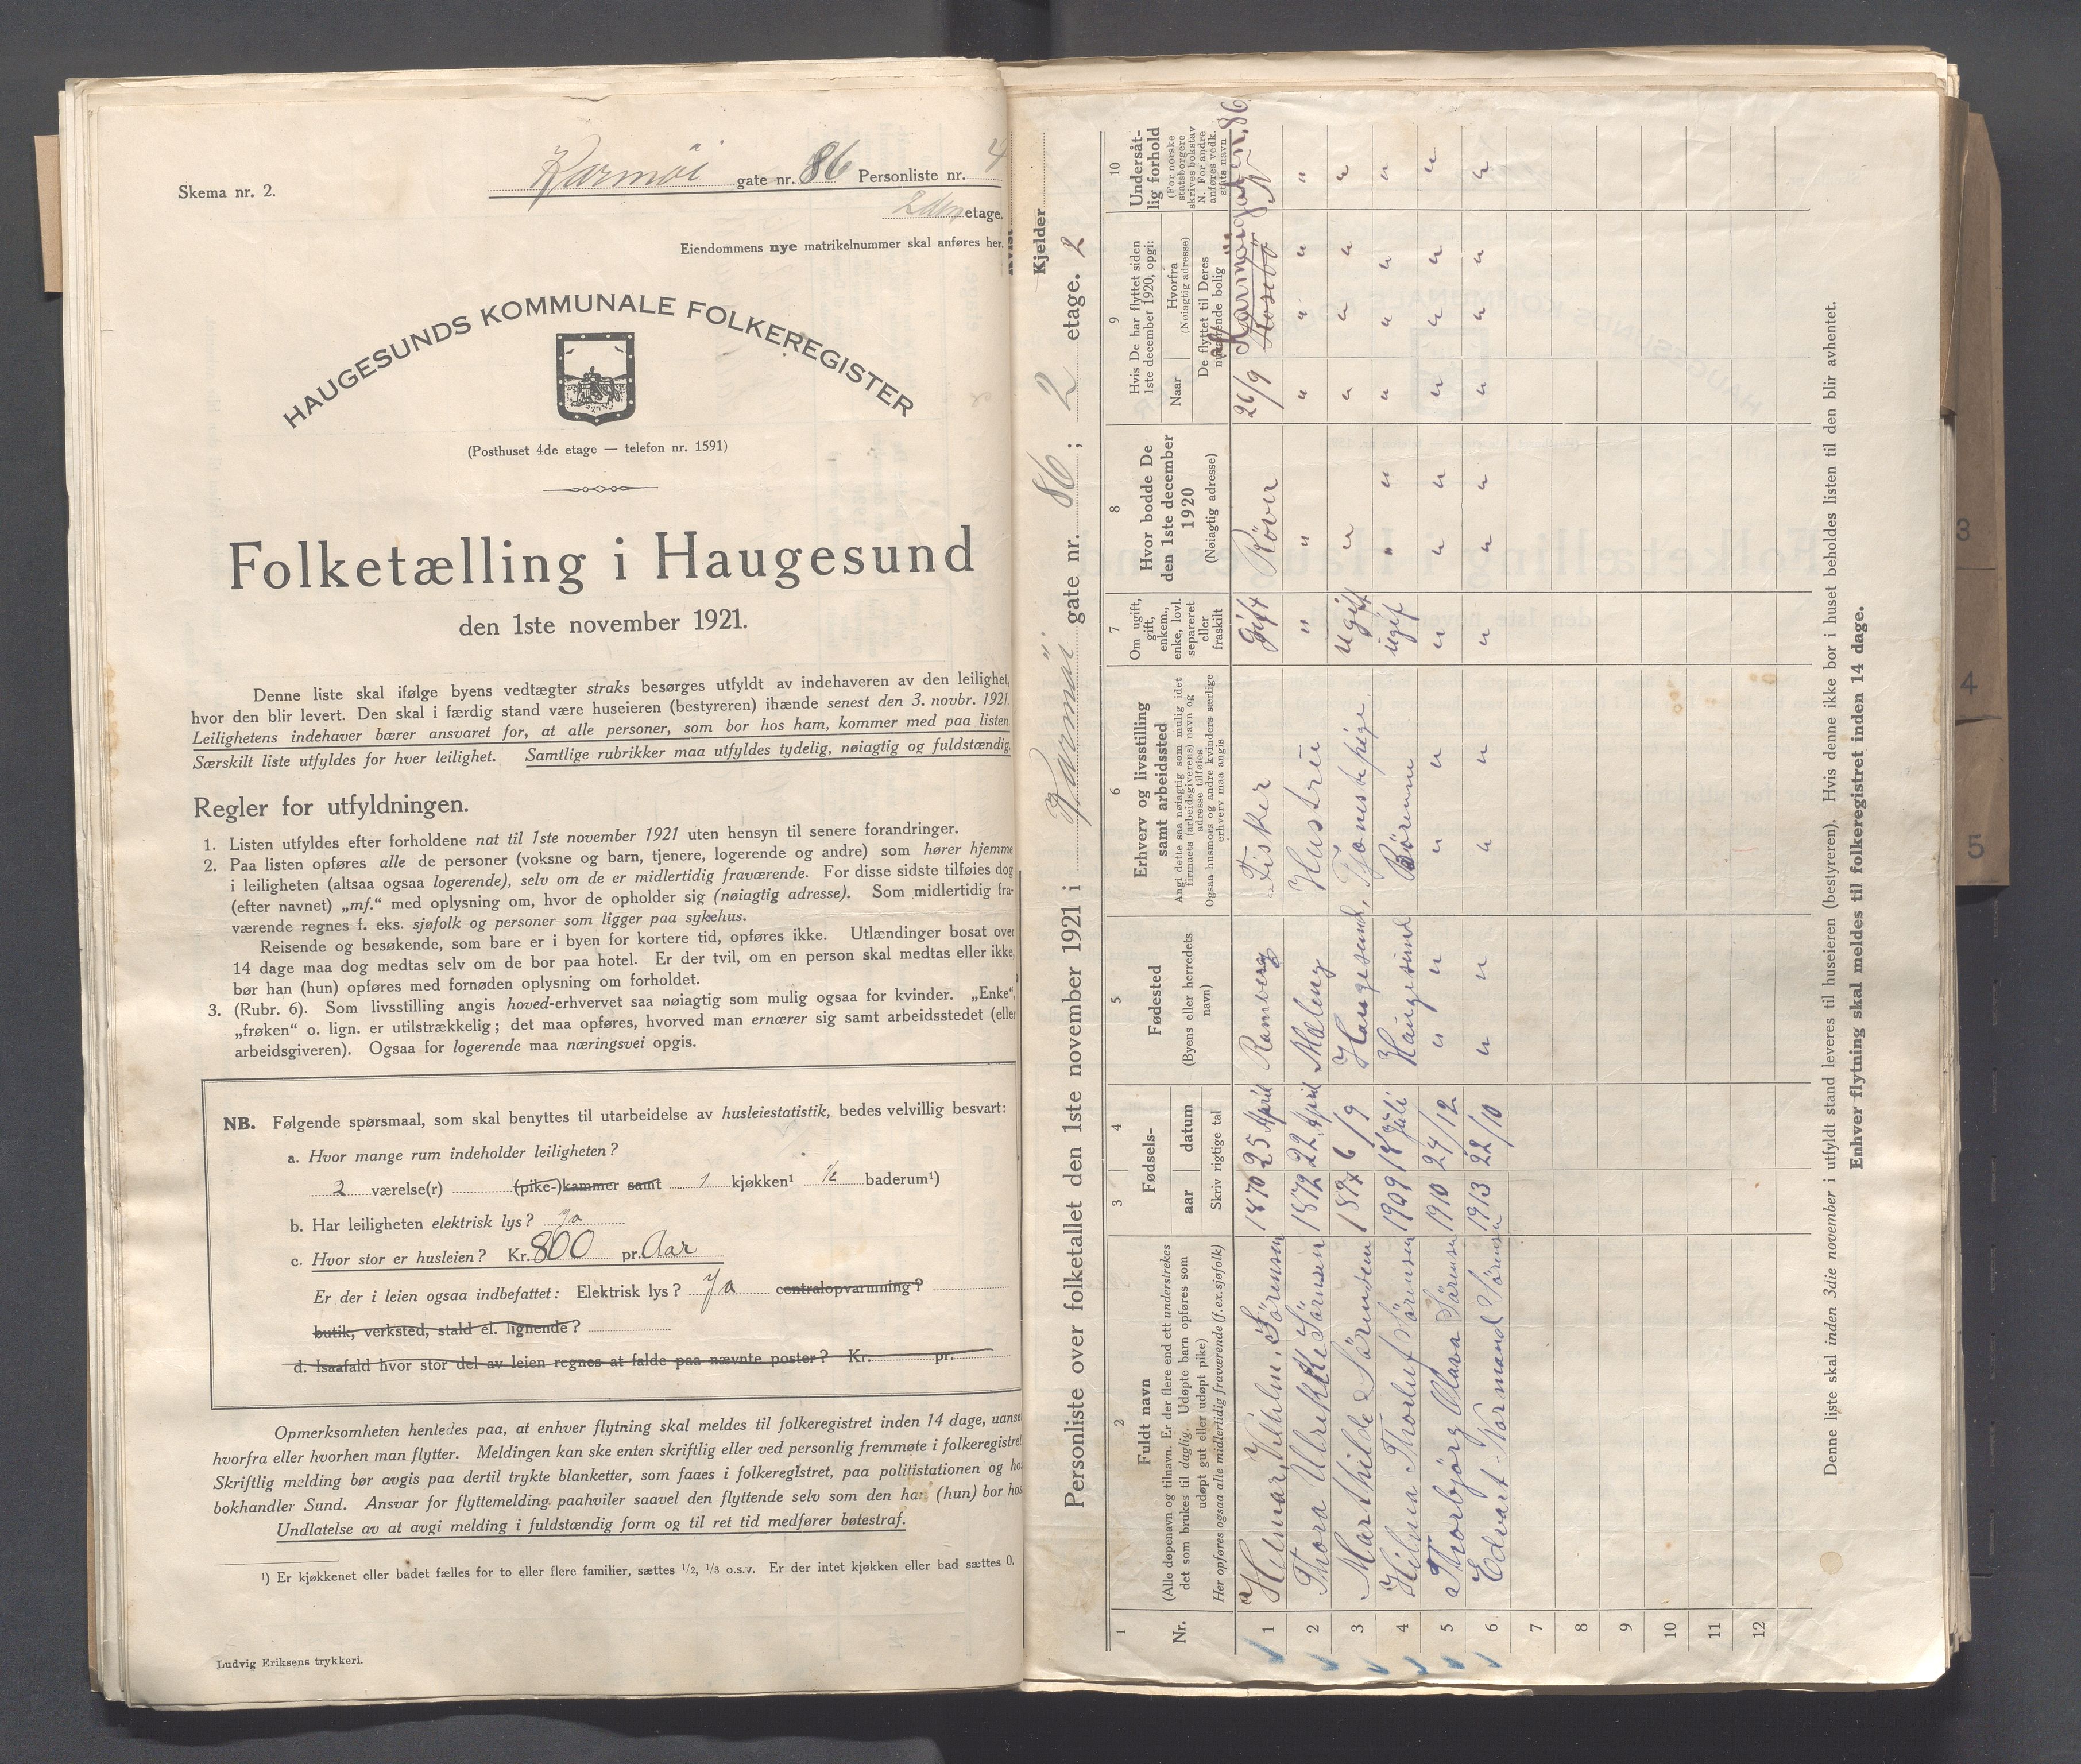 Skema nr. 2.
Karmöi gate nr. 86 Personliste nr. 4
2den etage.
Eiendommens nye matrikelnummer skal anføres her.
HAUGESUNDS KOMMUNALE FOLKEREGISTER
(Posthuset 4de etage — telefon nr. 1591)
Folketælling i Haugesund
den 1ste november 1921.
Denne liste skal ifølge byens vedtægter straks besørges utfyldt av indehaveren av den leilighet,
hvor den blir levert. Den skal i færdig stand være huseieren (bestyreren) ihænde senest den 3. novbr. 1921.
Leilighetens indehaver bærer ansvaret for, at alle personer, som bor hos ham, kommer med paa listen.
Særskilt liste utfyldes for hver leilighet. Samtlige rubrikker maa utfyldes tydelig, nøiagtig og fuldstændig.
Regler for utfyldningen.
1. Listen utfyldes efter forholdene nat til 1ste november 1921 uten hensyn til senere forandringer.
2. Paa listen opføres alle de personer (voksne og barn, tjenere, logerende og andre) som hører hjemme
i leiligheten (altsaa ogsaa logerende), selv om de er midlertidig fraværende. For disse sidste tilføies dog
(efter navnet) „mf.“ med oplysning om, hvor de opholder sig (nøiagtig adresse). Som midlertidig fra-
værende regnes f. eks. sjøfolk og personer som ligger paa sykehus.
Reisende og besøkende, som bare er i byen for kortere tid, opføres ikke. Utlændinger bosat over
14 dage maa dog medtas selv om de bor paa hotel. Er der tvil, om en person skal medtas eller ikke,
bør han (hun) opføres med fornøden oplysning om forholdet.
3. (Rubr. 6). Som livsstilling angis hoved-erhvervet saa nøiagtig som mulig ogsaa for kvinder. „Enke“,
„frøken“ o. lign. er utilstrækkelig; det maa opføres, hvorved man ernærer sig samt arbeidsstedet (eller
arbeidsgiveren). Ogsaa for logerende maa næringsvei opgis.
NB. Følgende spørsmaal, som skal benyttes til utarbeidelse av husleiestatistik, bedes velvillig besvart:
a. Hvor mange rum indeholder leiligheten?
2 værelse(r) (pike-)kammer samt 1 kjøkken¹ ½ baderum¹)
b. Har leiligheten elektrisk lys? ja
c. Hvor stor er husleien? Kr. 800 pr. Aar
Er der i leien ogsaa indbefattet: Elektrisk lys? Ja centralopvarmning?
butik, verksted, stald el. lignende?
d. Isaafald hvor stor del av leien regnes at falde paa nævnte poster? Kr. pr.
Opmerksomheten henledes paa, at enhver flytning skal meldes til folkeregistret inden 14 dage, uanset
hvorfra eller hvorhen man flytter. Meldingen kan ske enten skriftlig eller ved personlig fremmøte i folkeregistret
Skriftlig melding bør avgis paa dertil trykte blanketter, som faaes i folkeregistret, paa politistationen og hos
bokhandler Sund. Ansvar for flyttemelding paahviler saavel den flyttende selv som den han (hun) bor hos
Undlatelse av at avgi melding i fuldstændig form og til ret tid medfører bøtestraf.
¹) Er kjøkkenet eller badet fælles for to eller flere familier, sættes 1/2, 1/3 o.s.v. Er der intet kjøkken eller bad sættes 0.
Ludvig Eriksens trykkeri.
Kvist
Kjelder
Personliste over folketallet den 1ste november 1921 i Karmöi gate nr. 86; 2 etage. 2
1 2 3 4 5 6 7 8 9 10
Nr.
Fuldt navn
(Alle døpenavn og tilnavn. Er der flere end ett understrekes
det som brukes til daglig. Udøpte barn opføres som
udøpt gut eller udøpt pike)
Her opføres ogsaa alle midlertidig fraværende (f.ex. sjøfolk)
Fødsels-
aar datum
Skriv rigtige tal
Fødested
(Byens eller herredets
navn)
Erhverv og livsstilling
samt arbeidssted
Angi dette saa nøiagtig som mulig idet
firmaets (arbeidsgiverens) navn og
adresse tilføies
Ogsaa husmors og andre kvinders særlige
erhverv maa angis
Om ugift,
gift,
enkem.,
enke, lovl.
separeret
eller
fraskilt
Hvor bodde De
den 1ste december
1920
(Nøiagtig adresse)
Hvis De har flyttet siden
1ste december 1920, opgi:
Naar
Hvorfra
(Nøiagtig adresse)
De flyttet til Deres
nuværende bolig
Undersåt-
lig forhold
(For norske
statsborgere
skrives bokstav
N. For andre
anføres vedk.
stats navn
Karmöigaten. 86
1 Hilmar, Vilhelm, Sörensen 1870 25 April Ramberg Fisker gift Röver 26/9 N
2 Thora Ulrikke Sörensen 1872 22 April Mæleng Hustru " " " " " "
3 Marthilde Sörensen 6/9 Haugesund, Tjenestepige. ugift " " " " "
4 Hilma Thoroluf Sörensen 1909 18 Juli Haugesund Börenne ugif " " " " " "
5 Thorbjörg Mara Sörensen 1910 24/12 " " " " " " " " " " "
6 Edvart Normand Sörensen 1913 22/10 " " " " " " " " " " "
7
8
9
10
11
12
Denne liste skal inden 3die november i utfyldt stand leveres til huseieren (bestyreren). Hvis denne ikke bor i huset beholdes listen til den blir avhentet.
Enhver flytning skal meldes til folkeregistret inden 14 dage.
3
4
5